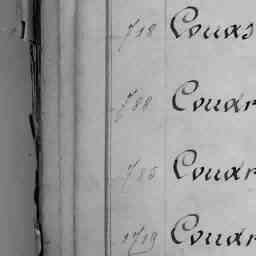 718 Couas
788 Coudr
785 Coudr
1719 Coudr